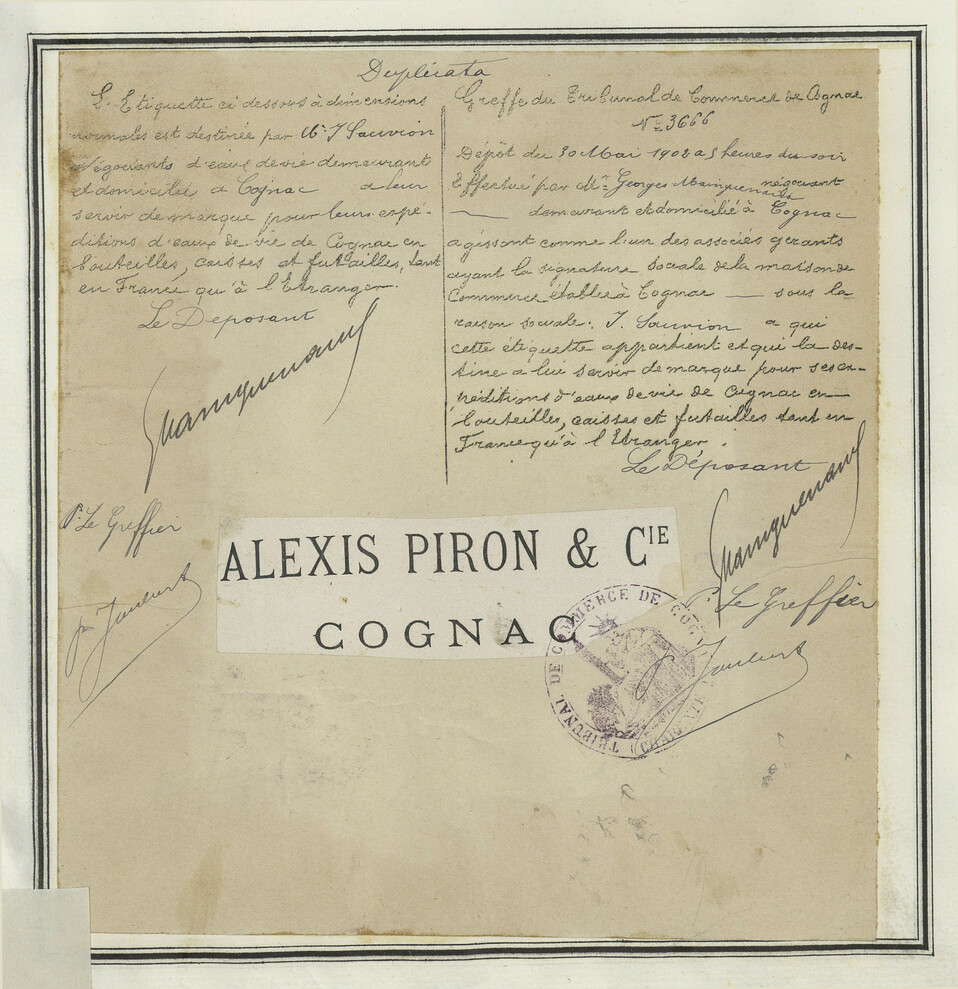 Duplicata
L'Etiquette ci dessous à dimensions
normales est destinée par Mr J Sauvion
Négociants d'eaux de vie demeurant
et domicilié a Cognac a leur
servir de marque pour leurs expé-
ditions d'eaux de vie de Cognac en
bouteilles, caisses et futailles, tant
en France qu'à l'Etranger.
Le Deposant
Mainguenaud
Pr Le Greffier
Greffe du Tribunal de Commerce de Cognac
No 3666
Dépôt du 30 Mai 1902 a 5 heures du soir
Effectué par Mr Georges Mainguenaud négociant
— demeurant et domicilié à Cognac
agissant comme l'un des associés gérants
ayant la signature sociale de la maison de
Commerce établie à Cognac — sous la
raison sociale: J. Sauvion a qui
cette étiquette appartient et qui la des-
tine a lui servir de marque pour ses ex-
péditions d'eaux de vie de Cognac en
bouteilles, caisses et futailles tant en
France qu'à l'Etranger.
Le Déposant
Mainguenaud
Pr Le Greffier
ALEXIS PIRON & CIE
COGNAC
TRIBUNAL DE COMMERCE DE COGNAC